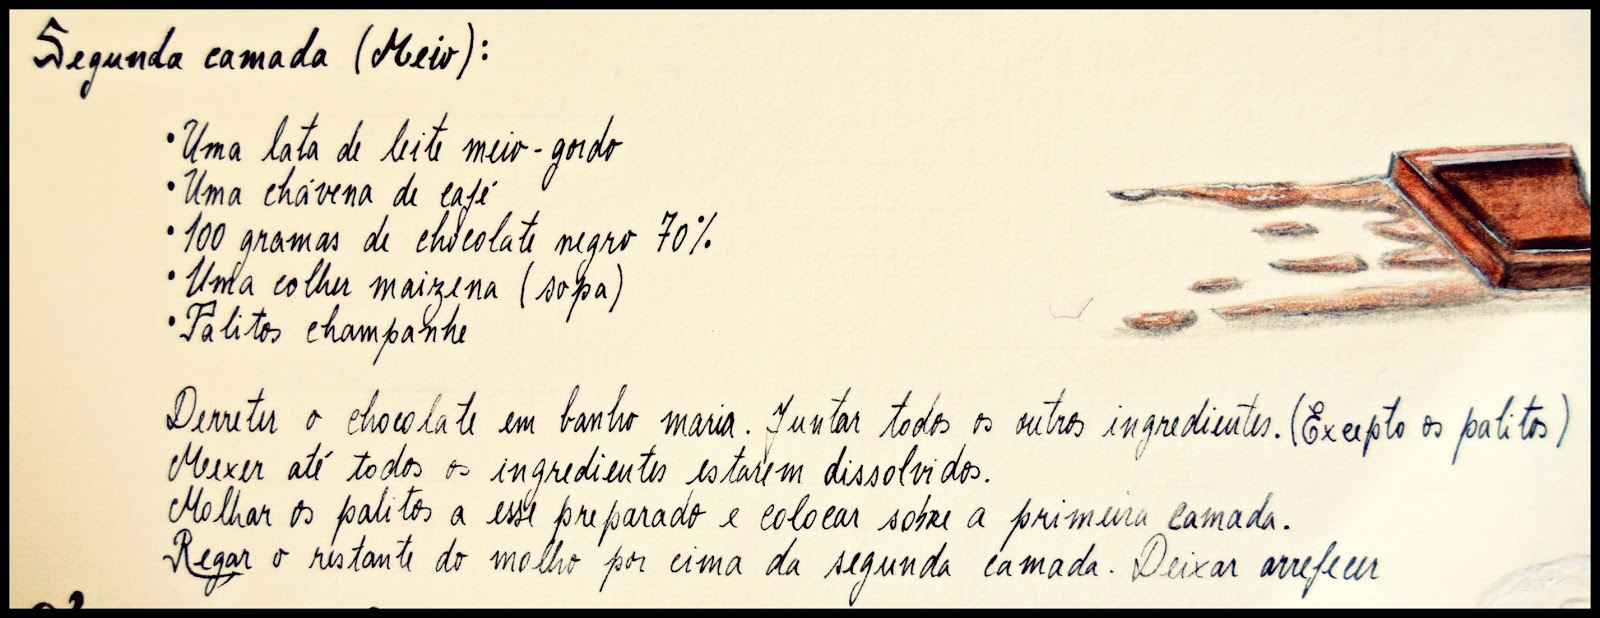 Segunda camada (Meio):
• Uma lata de leite meio-gordo
• Uma chávena de café
• 100 gramas de chocolate negro 70%
• Uma colher maizena (sopa)
• Palitos champanhe
Derreter o chocolate em banho maria. Juntar todos os outros ingredientes. (Excepto os palitos)
Mexer até todos os ingredientes estarem dissolvidos.
Molhar os palitos a esse preparado e colocar sobre a primeira camada.
Regar o restante do molho por cima da segunda camada. Deixar arrefecer